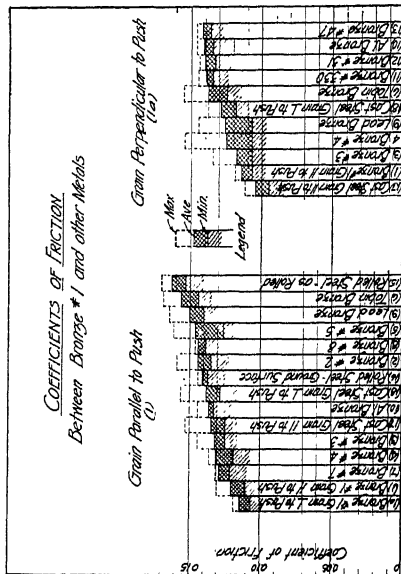 COEFFICIENTS OF FRICTION
Between Bronze #1 and other Metals
Grain Parallel to Push
(1)
Grain Perpendicular to Push
(1a)
Max
Ave
Min.
Legend
Coefficient of Friction
0.15
0.10
0.05
0
Bronze #1 Grain ⊥ to Push
Bronze #1 Grain II to Push
Bronze #7
Bronze #4
Bronze #3
Cast Steel Grain II to Push
Al. Bronze
Cast Steel Grain ⊥ to Push
Rolled Steel Ground Surface
Bronze #2
Bronze #8
Bronze #5
(9) Lead Bronze
Tobin Bronze
Rolled Steel - as Rolled
Cast Steel Grain II to Push
Bronze #1 Grain II to Push
Bronze #3
Bronze #4
(9) Lead Bronze
Cast Steel Grain ⊥ to Push
Tobin Bronze
Bronze #330
Bronze #31
Al Bronze
Bronze #47